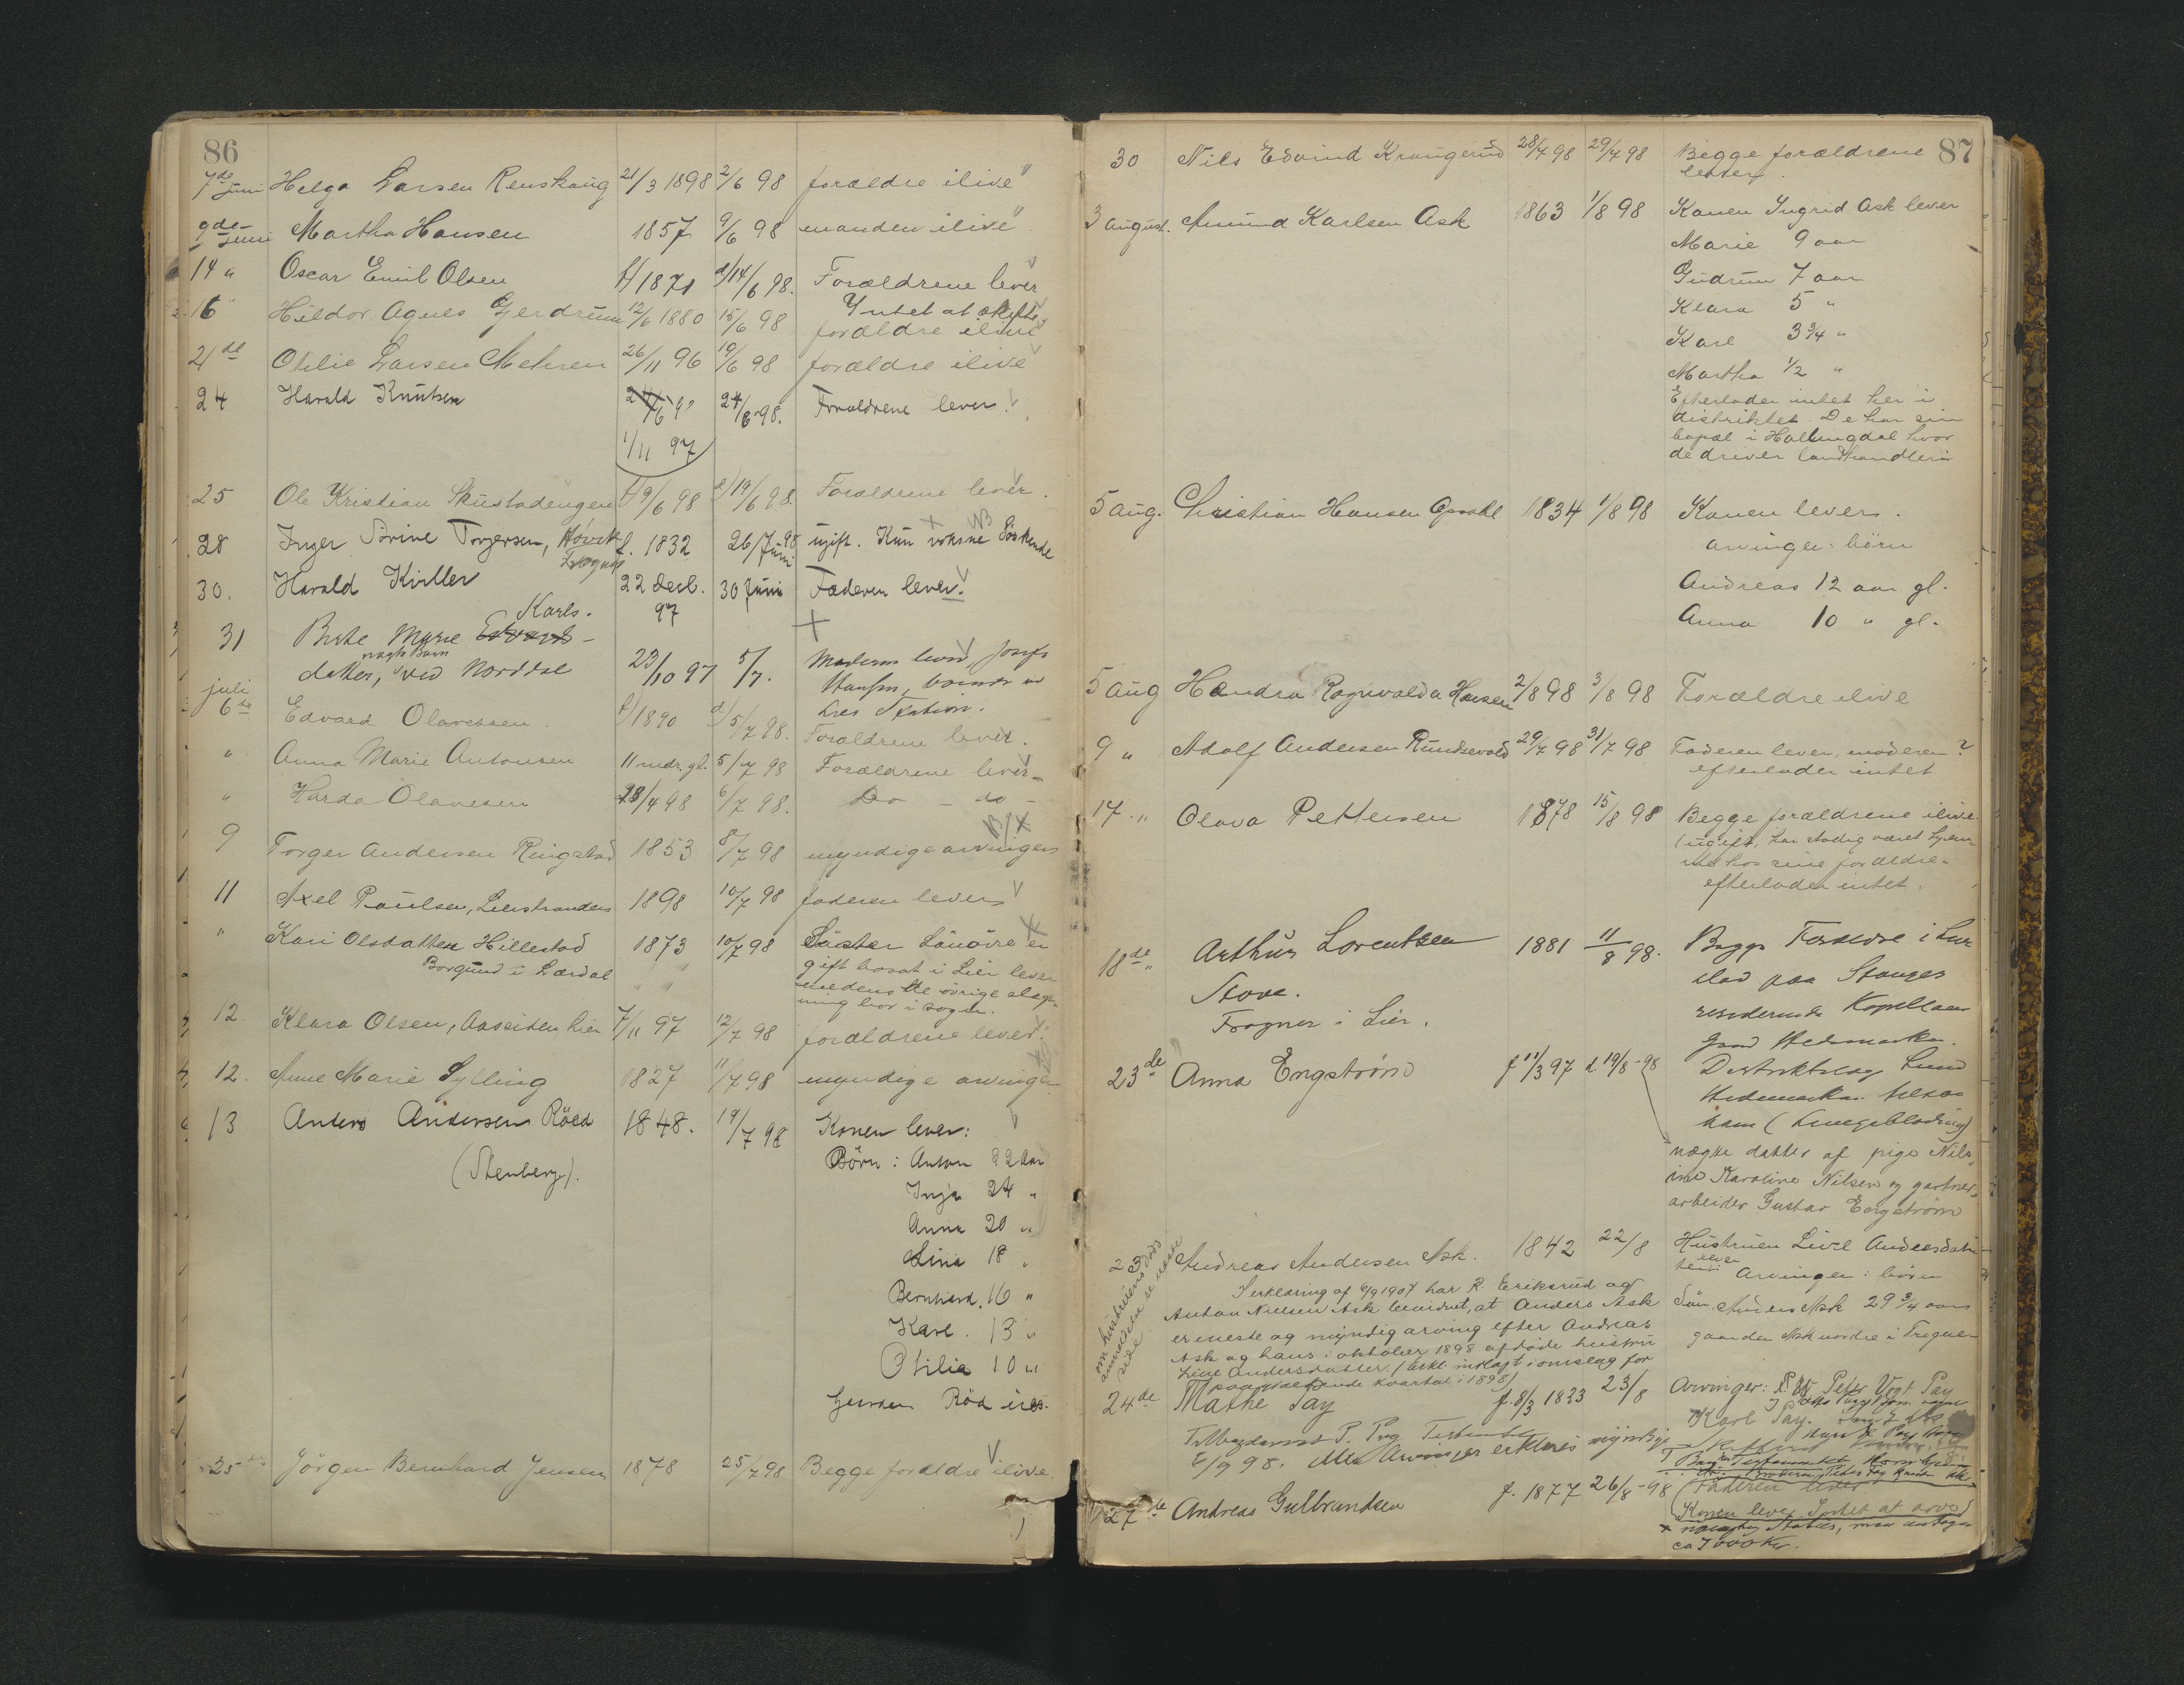 86
7de juni Helga Larsen Renskaug 21/3 1898 2/6 98 forældre ilive
9de juni Martha Hansen 1857 9/6 98 manden ilive
14 " Oscar Emil Olsen f/1871 d/14/6 98. Forældrene lever
Intet at skifte.
16 " Hildor Agnes Gjerdrum 12/6 1880 15/6 98 forældre ilive
21de Othilie Larsen Mehren 26/11 96 19/6 98 forældre ilive
24 Harald Knutsen 24/6 9 24/6 98. Forældrene lever.
1/11 97
25 Ole Kristian Skustadengen f/9/6 98 d/19/6 98. Forældrene lever.
NB
28 Inger Sørine Torgersen, f. 1832 26/Juni 98 ugift. Kun voksne Söskende
Frogner
30. Harald Kiøller 22 Decb. 97 30 Juni Faderen lever.
Karls-
31 Berte Marie
uægte Barn
datter, ved Norddal 23/10 97 5/7. Moderen lever, Josefe
Hansen, boende ved
Lier Station.
juli
6te Edvard Olavessen. f/1890 d/5/7 98. Forældrene lever.
" Anna Marie Antonsen 11 mdr. gl. 5/7 98 Forældrene lever
" Harda Olavesen 28/4 98 6/7 98. Do - do -
9 Torger Andersen Ringstad 1853 8/7 98 myndige arvinger
11 Axel Paulsen, Lierstranden 1898 10/7 98 faderen lever
" Kari Olsdatter Hillestad 1873 10/7 98 Søster Lönövre er
Borgund i Lærdal gift bosat i Lier lever
medens de övrige slægt-
ning bor i sogn.
12. Klara Olsen, Aaseiden Lier 7/11 97 12/7 98 forældrene lever.
12. Anne Marie Sylling 1827 11/7 98 myndige arvinger
13 Anders Andersen Röed 1848. 19/7 98 Konen lever:
(Stenberg). Börn: Anton 22 Aar
Inga 24 "
Anna 20 "
Lina 18 "
Bernhard. 16 "
Karl. 13 "
Othilie 10 "
Gaarden Röd eies.
25 Jörgen Bernhard Jensen 1878 25/7 98 Begge forældre ilive.
87
30 Nils Edvind Kraugerud 28/7 98 29/7 98 Begge forældrene
lever.
3 august. Amund Karlsen Ask 1863 1/8 98 Konen Ingrid Ask lever
Marie 9 aar
Gudrun 7 aar
Klara 5 "
Karl 3 3/4 "
Martha 1/2 "
Efterlader intet her i
distriktet. De har sin
bopæl i Hallingdal hvor
de driver landhandleri
5 aug. Christian Hansen Opsahl 1834 1/8 98 Konen lever.
arvinger: börn
Andreas 12 aar gl.
Anna 10 " gl.
5 aug Handra Ragnvalda Hansen 2/8 98 3/8 98 Forældre ilive
9 " Adolf Andersen Rundsevold 29/7 98 31/7 98 Faderen lever, moderen?
efterlader intet
17. " Olava Pettersen 1878 15/8 98 Begge forældrene ilive.
(ugift, har stadig været hjem-
me hos sine forældre-
efterlader intet.
18de " Arthur Lorentzen 1881 11/8 98. Begge Forældre i Live
Stove. paa Stanges
Frogner i Lier. residerende Kapellan
Gaard Hedemarken.
23de Anna Engstrøm f 11/3 97 d. 19/8-98 Distriktslæge Lund
Hedemarken
ham (Lungeblødning)
uægte datter af pige Nils-
ine Karoline Nilsen og gartner-
arbeider Gustav Engström
23 Andreas Andersen Ask. 1842 22/8 Hustruen Live Andersdat-
ter lever
Arvinger: börn
om hustruens död
anmeldelse se næste
side.
I erklæring af 6/9 1907 har R. Eriksrud og Sön Anders Ask 29 3/4 aar
Anton Nielsen Ask bevidnet, at Anders Ask
er eneste og myndig arving efter Andreas gaarden Ask nordre i Tregner
Ask og hans i oktober 1898 afdøde hustru
Live Andersdatter. (erkl. indlagt i omslag for
paagjeldende kvartal i 1898)
24de Mathe Pay f. 8/3 1833 23/8 Arvinger: Peter Vogt Pay
Karl Pay.
6/9 98. Alle Arvinger erklæres myndige
27de Andreas Gulbrandsen f. 1877 26/8-98 (Faderen lever
Konen lever. Intet at arve)
ca 7000 Kr.